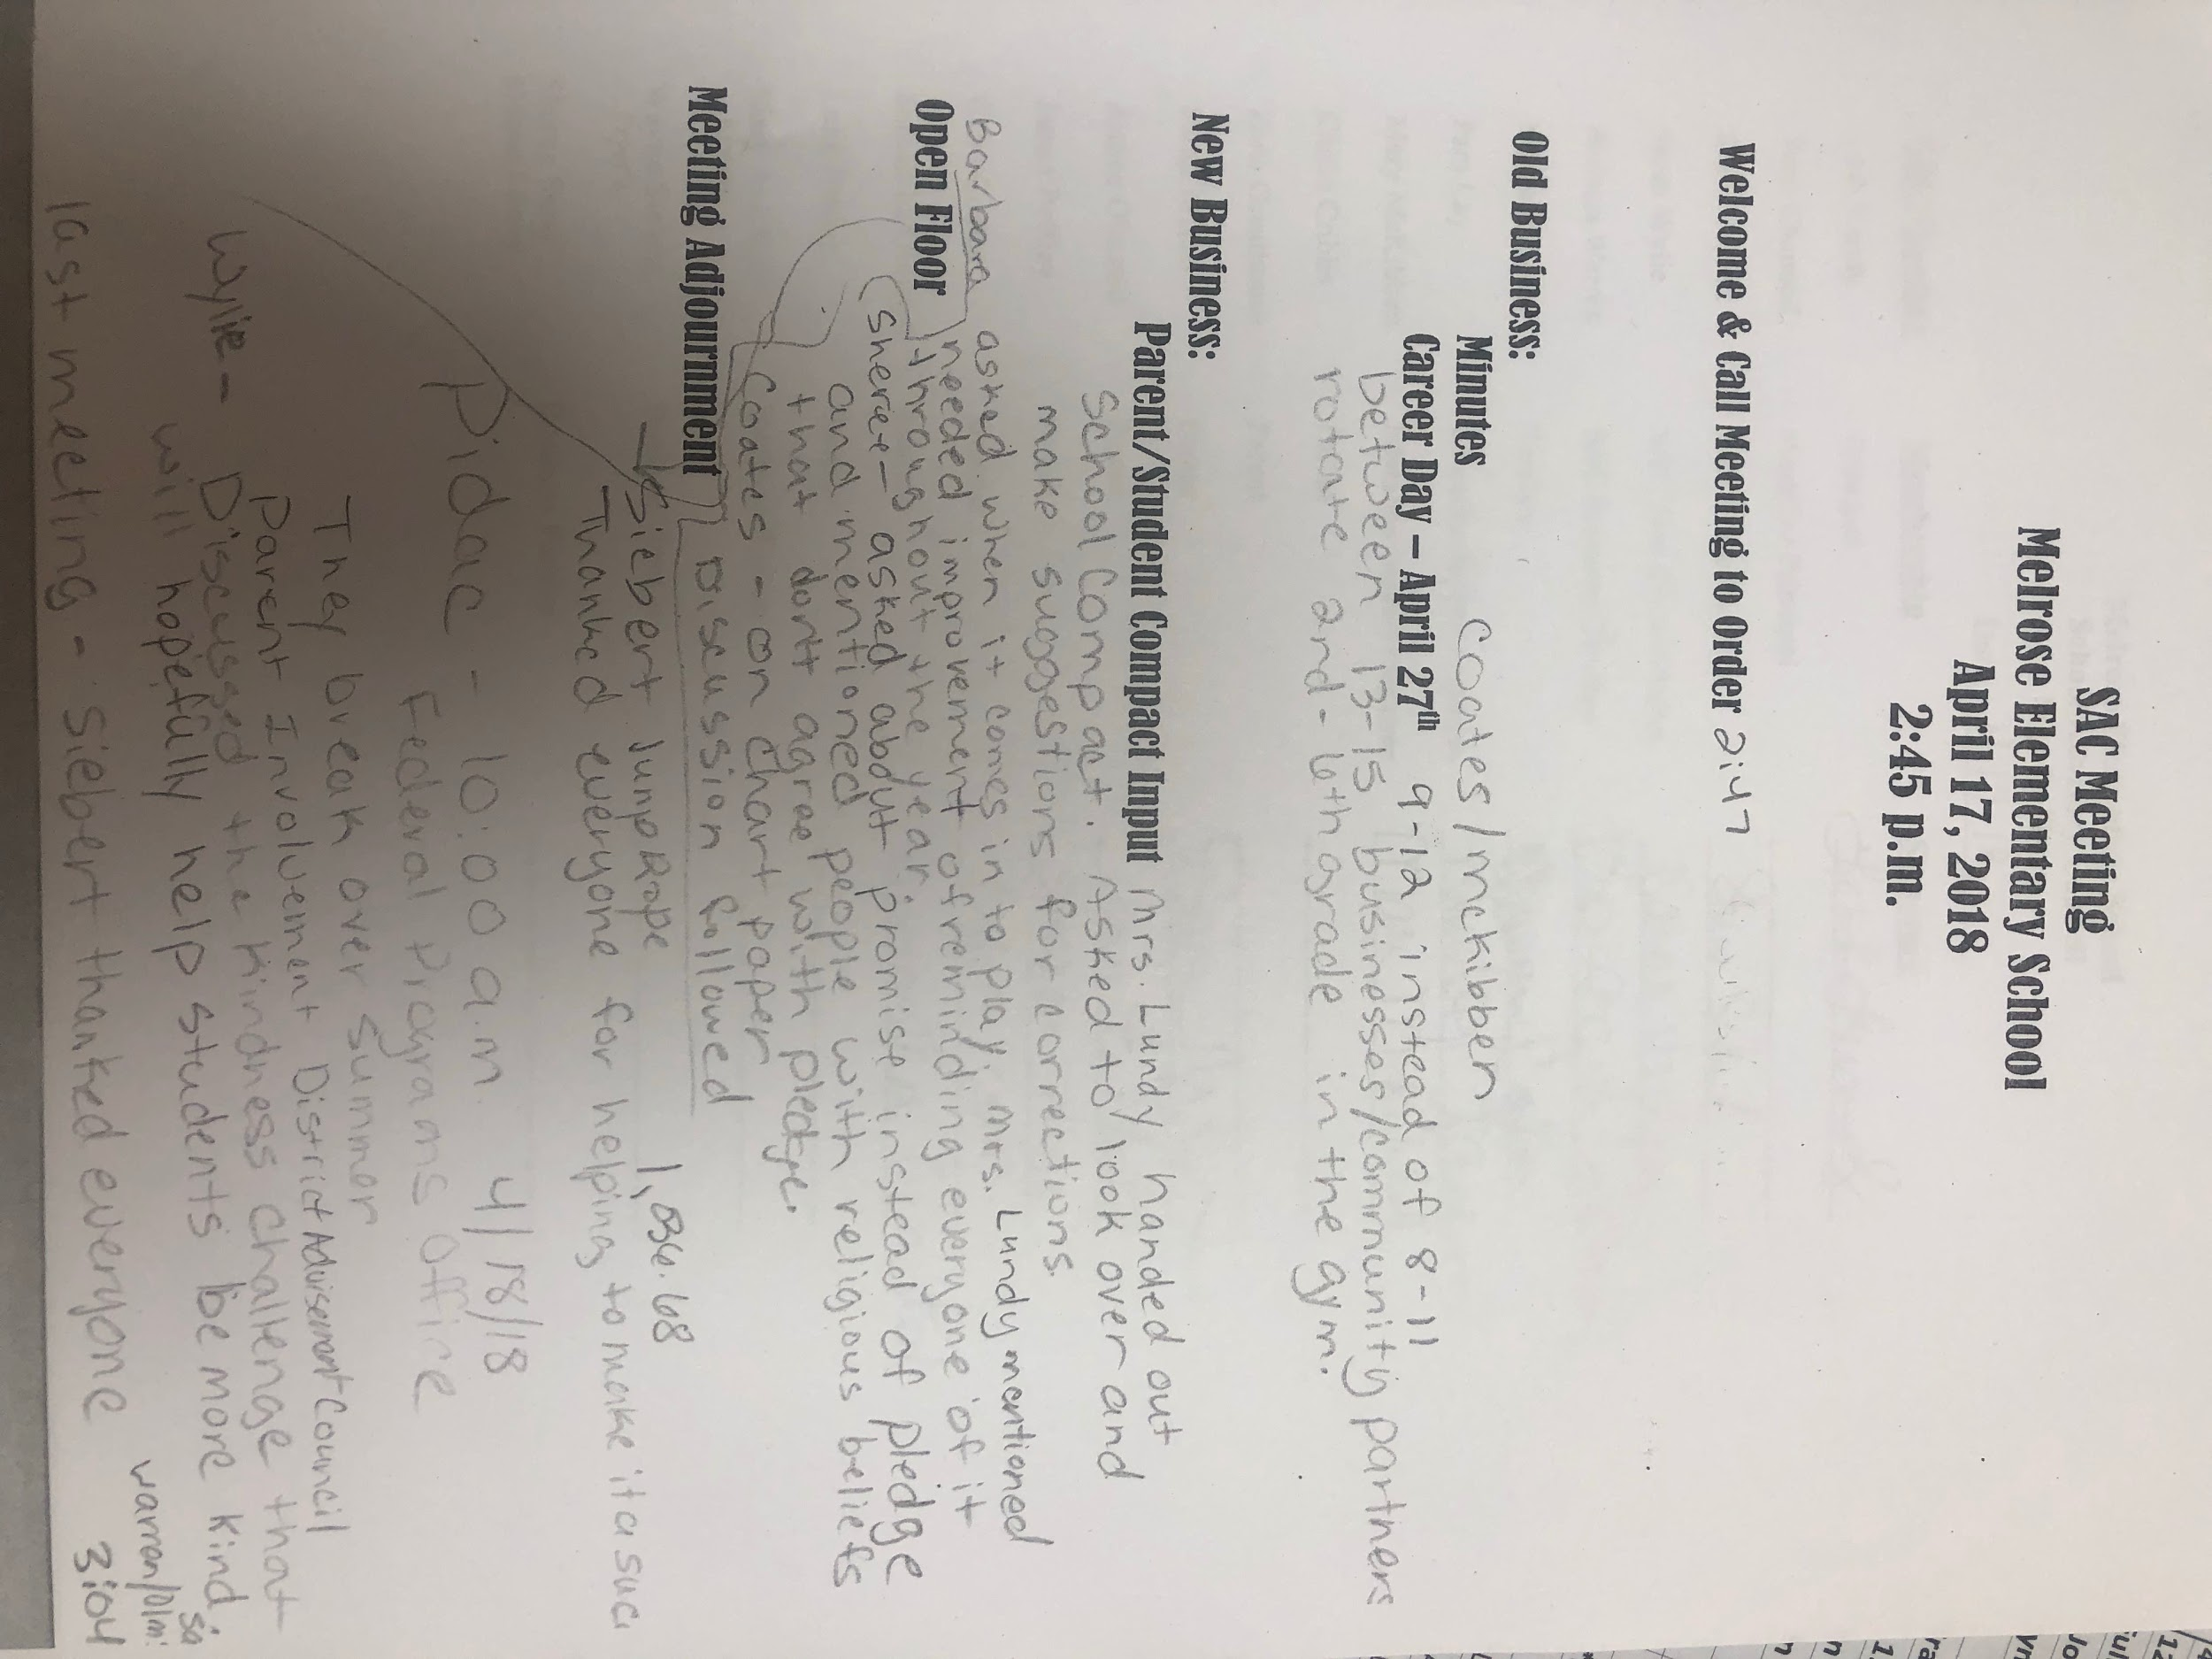 SAC Meeting
Melrose Elementary School
April 17, 2018
2:45 p.m.
Welcome & Call Meeting to Order 2:47
Old Business:
Minutes Coates/mckibben
Career Day – April 27th 9-12 instead of 8-11
between 13-15 businesses/community partners
rotate and - 6th grade in the gym.
New Business:
Parent/Student Compact Input Mrs. Lundy handed out
School Compact. Asked to look over and
make suggestions for corrections.
Barbara asked when it comes in to play mrs. Lundy mentioned
Open Floor needed improvement of reminding everyone of it
throughout the year.
Sheree - asked about promise instead of pledge
and mentioned people with religious beliefs
that dont agree with pledge.
Coates - on chart paper
Meeting Adjournment Discussion followed
Siebert Jump Rope 1,036.68
Thanked everyone for helping to make it a suc
Pidac - 10:00 a.m. 4/18/18
Federal Programs Office
They break over summer
Parent Involvement District Advisement Council
Wylie - Discussed the kindness challenge that
will hopefully help students be more kind.
last meeting - Siebert thanked everyone
3:04